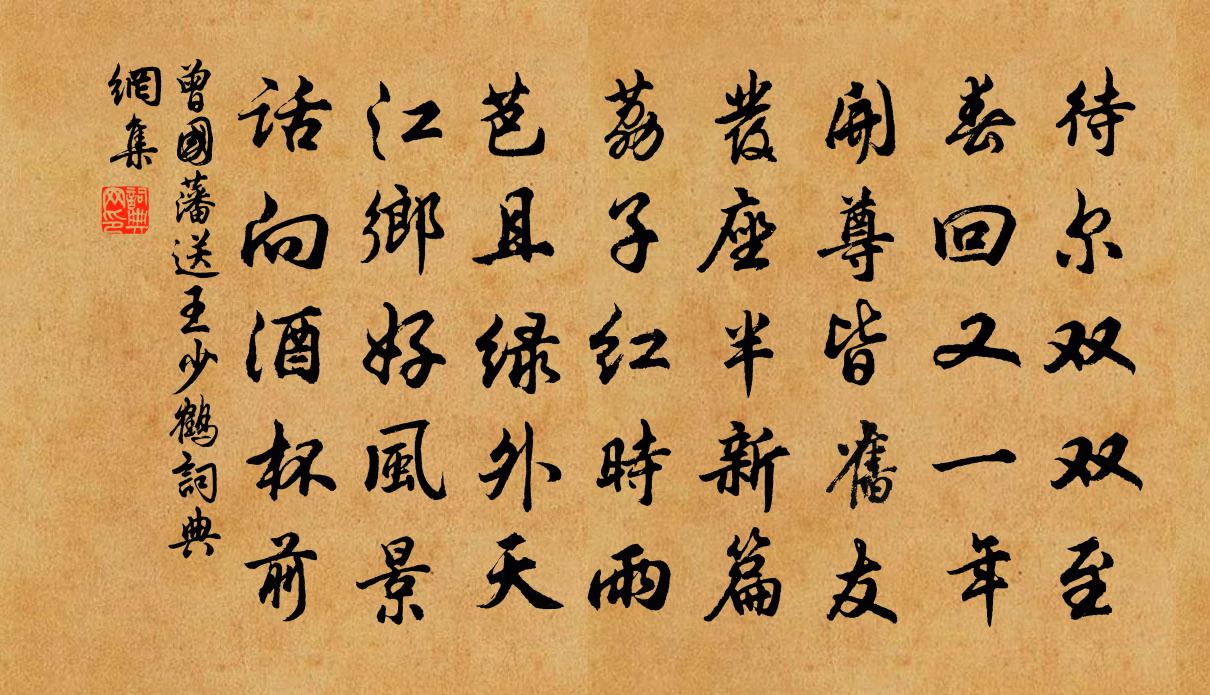 待尔双双至
春回又一年
開尊皆舊友
發座半新篇
荔子红時雨
芭且绿外天
江鄉好風景
话向酒杯前
曾國藩送王少鶴詞典
網集
詞典
网印